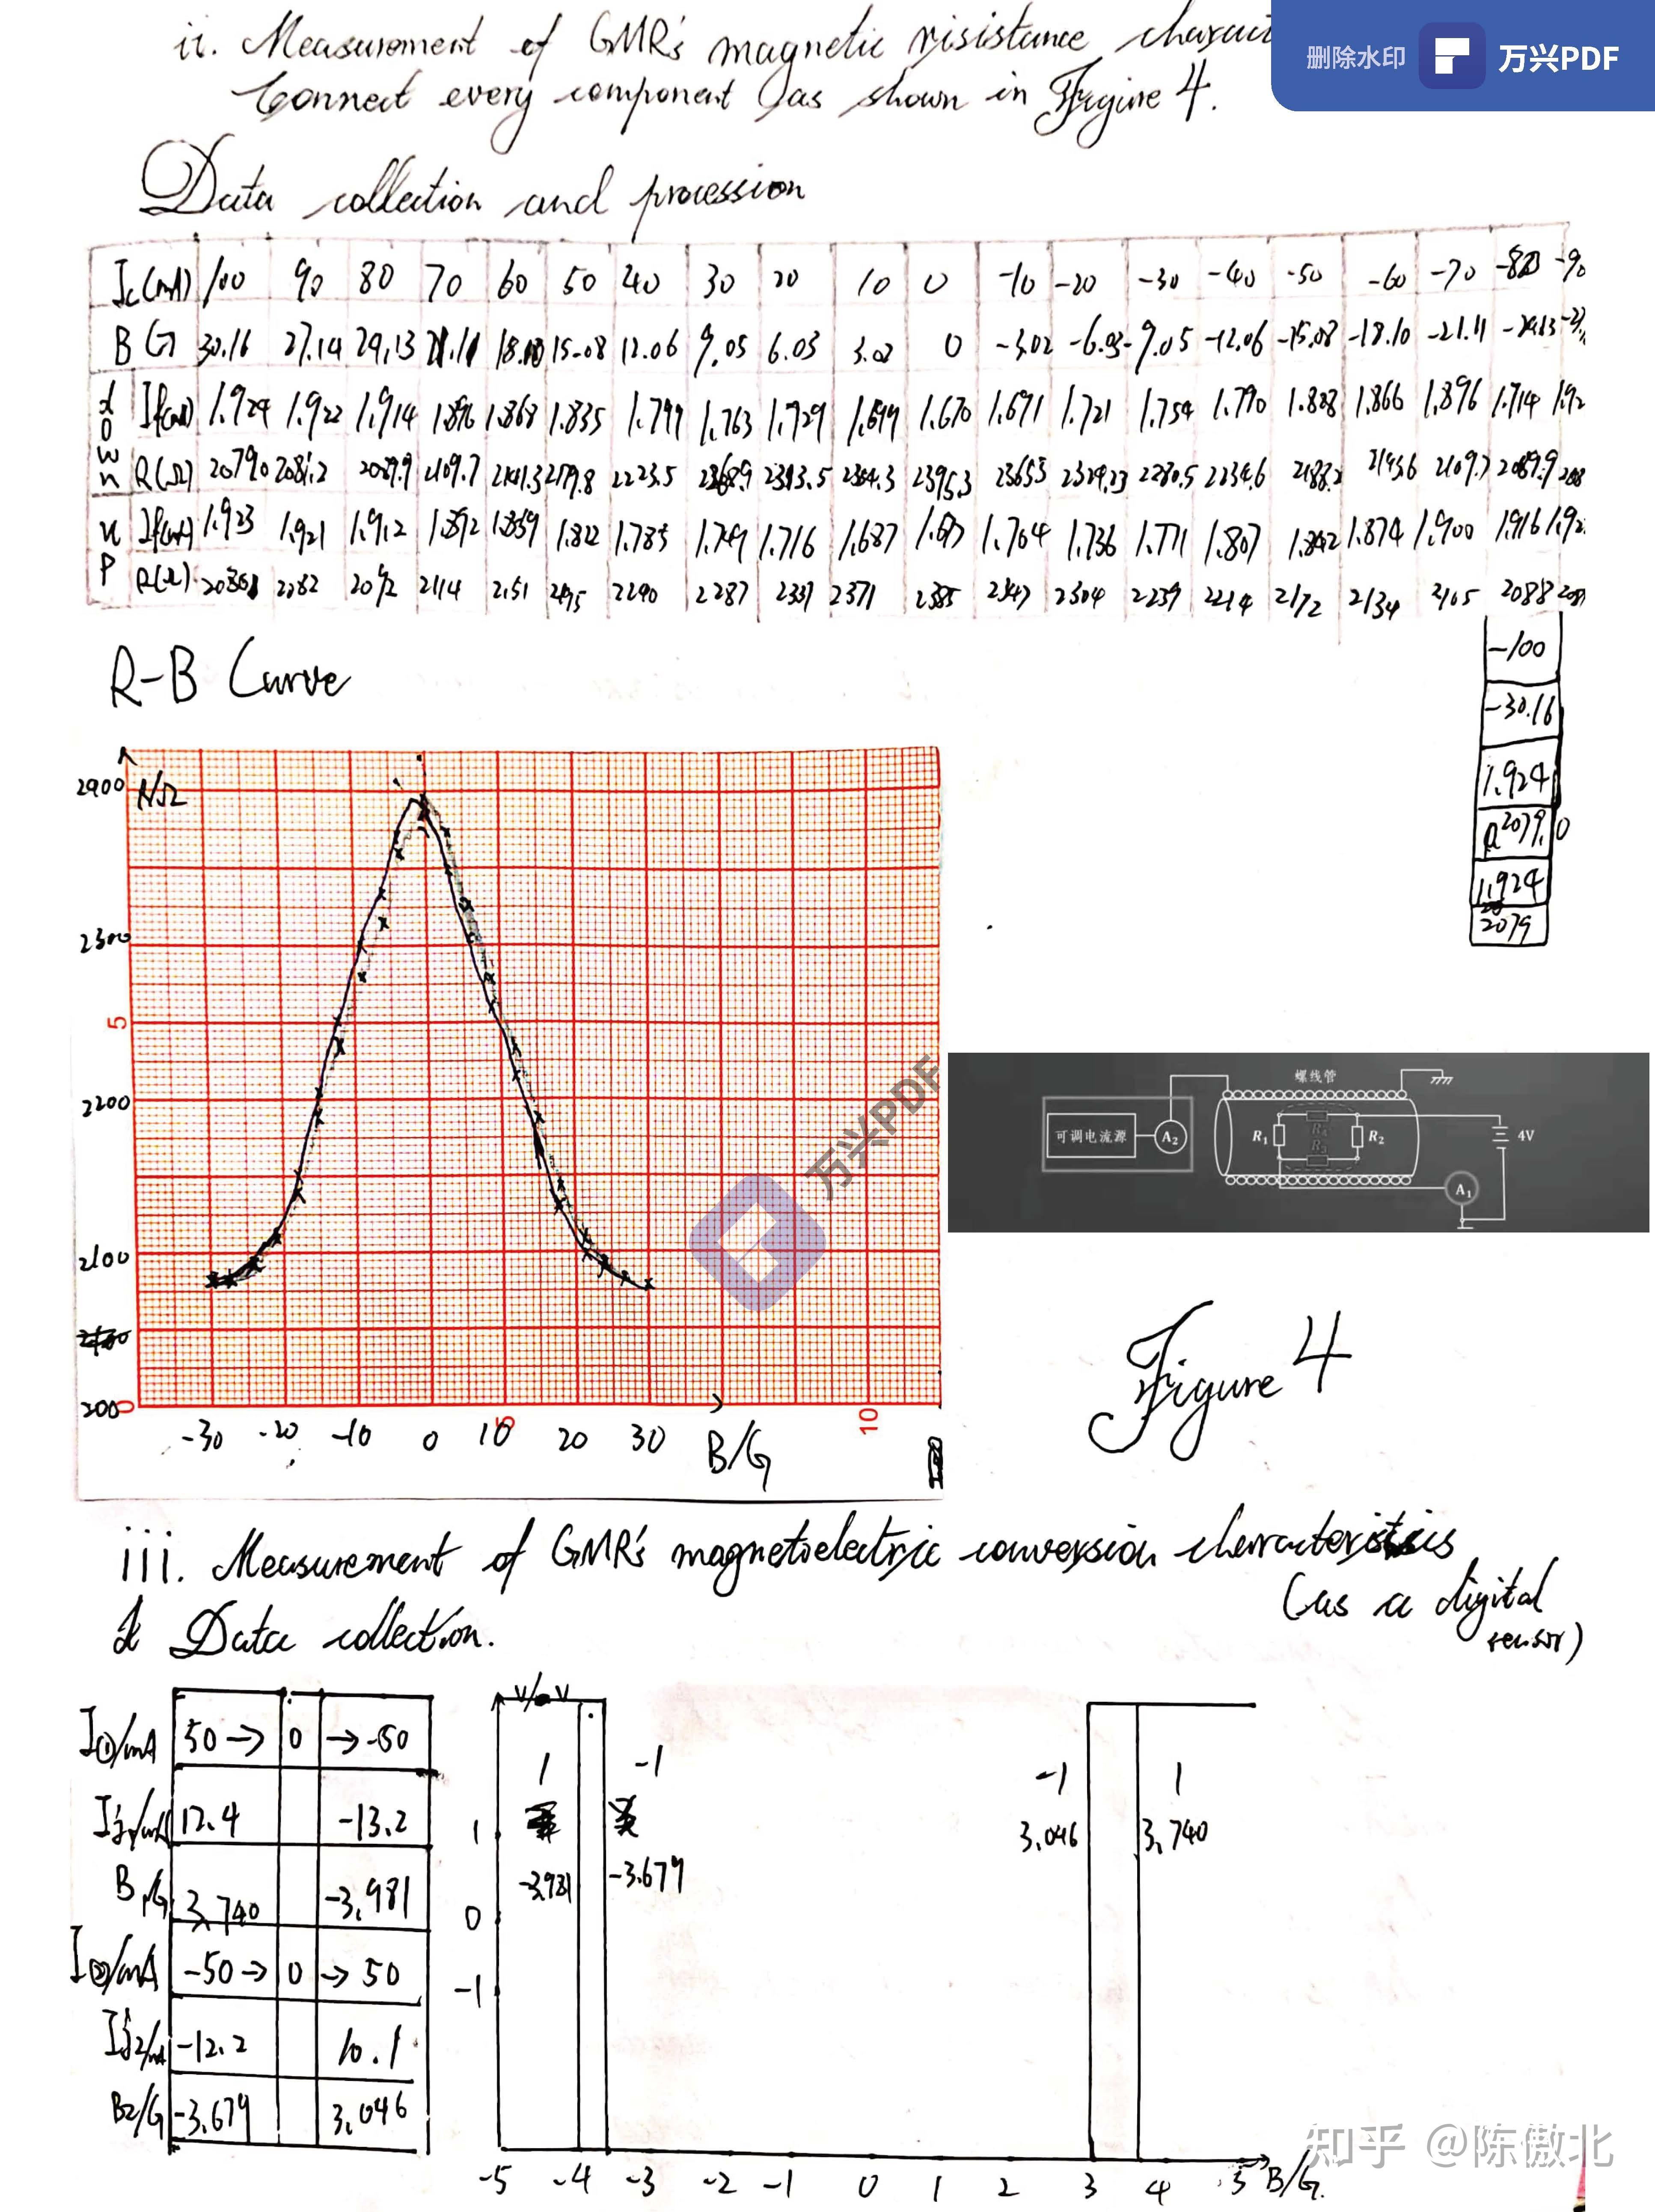 ii. Measurement of GMR's magnetic risistance charact
删除水印 万兴PDF
Connect every component as shown in Figure 4.
Data collection and procession
Ic(mA) 100 90 80 70 60 50 40 30 20 10 0 -10 -20 -30 -40 -50 -60 -70 -80 -90
B G 30.16 27.14 24,13 21.11 18.10 15.08 12.06 9.05 6.03 3.02 0 -3.02 -6.03 -9.05 -12.06 -15.08 -18.10 -21.11 -24.13 -27.
down If(mA) 1.924 1.922 1.914 1.896 1.868 1.835 1.799 1.763 1.729 1.699 1.670 1.691 1.721 1.754 1.790 1.828 1.866 1.896 1.914 1.92
R(Ω) 2079.0 2081.2 2089.9 2109.7 2141.3 2179.8 2223.5 2268.9 2313.5 2354.3 2395.3 2365.5 2324.23 2280.5 2234.6 2188.2 2143.6 2109.7 2089.9 208
up If(mA) 1.923 1.921 1.912 1.892 1.859 1.822 1.785 1.749 1.716 1.687 1.704 1.736 1.771 1.807 1.842 1.874 1.900 1.916 1.92
R(Ω) 2082 2114 2151 2195 2287 2331 2371 2385 2347 2304 2259 2214 2172 2134 2105 2088 208
-100
-30.16
1.924
2079.0
1.924
2079
R-B Curve
R/Ω
2300
5
2200
2100
0
-30 -20 -10 0 10 20 30 B/G
10
螺线管
可调电流源 A2 R1 R4 R3 R2 4V
A1
Figure 4
万兴PDF
iii. Measurement of GMR's magnetoelectric conversion characteristics
(as a digital
sensor)
Data collection.
I①/mA 50 → 0 → -50
Ij1/mA 12.4 -13.2
B1/G 3.740 -3.981
I②/mA -50 → 0 → 50
Ij2/mA -12.2 10.1
B2/G -3.679 3.046
1 -1 -1 1
-3.981 -3.679 3.046 3.740
1
0
-1
-5 -4 -3 -2 -1 0 1 2 3 4 5 B/G.
知乎 @陈傲北